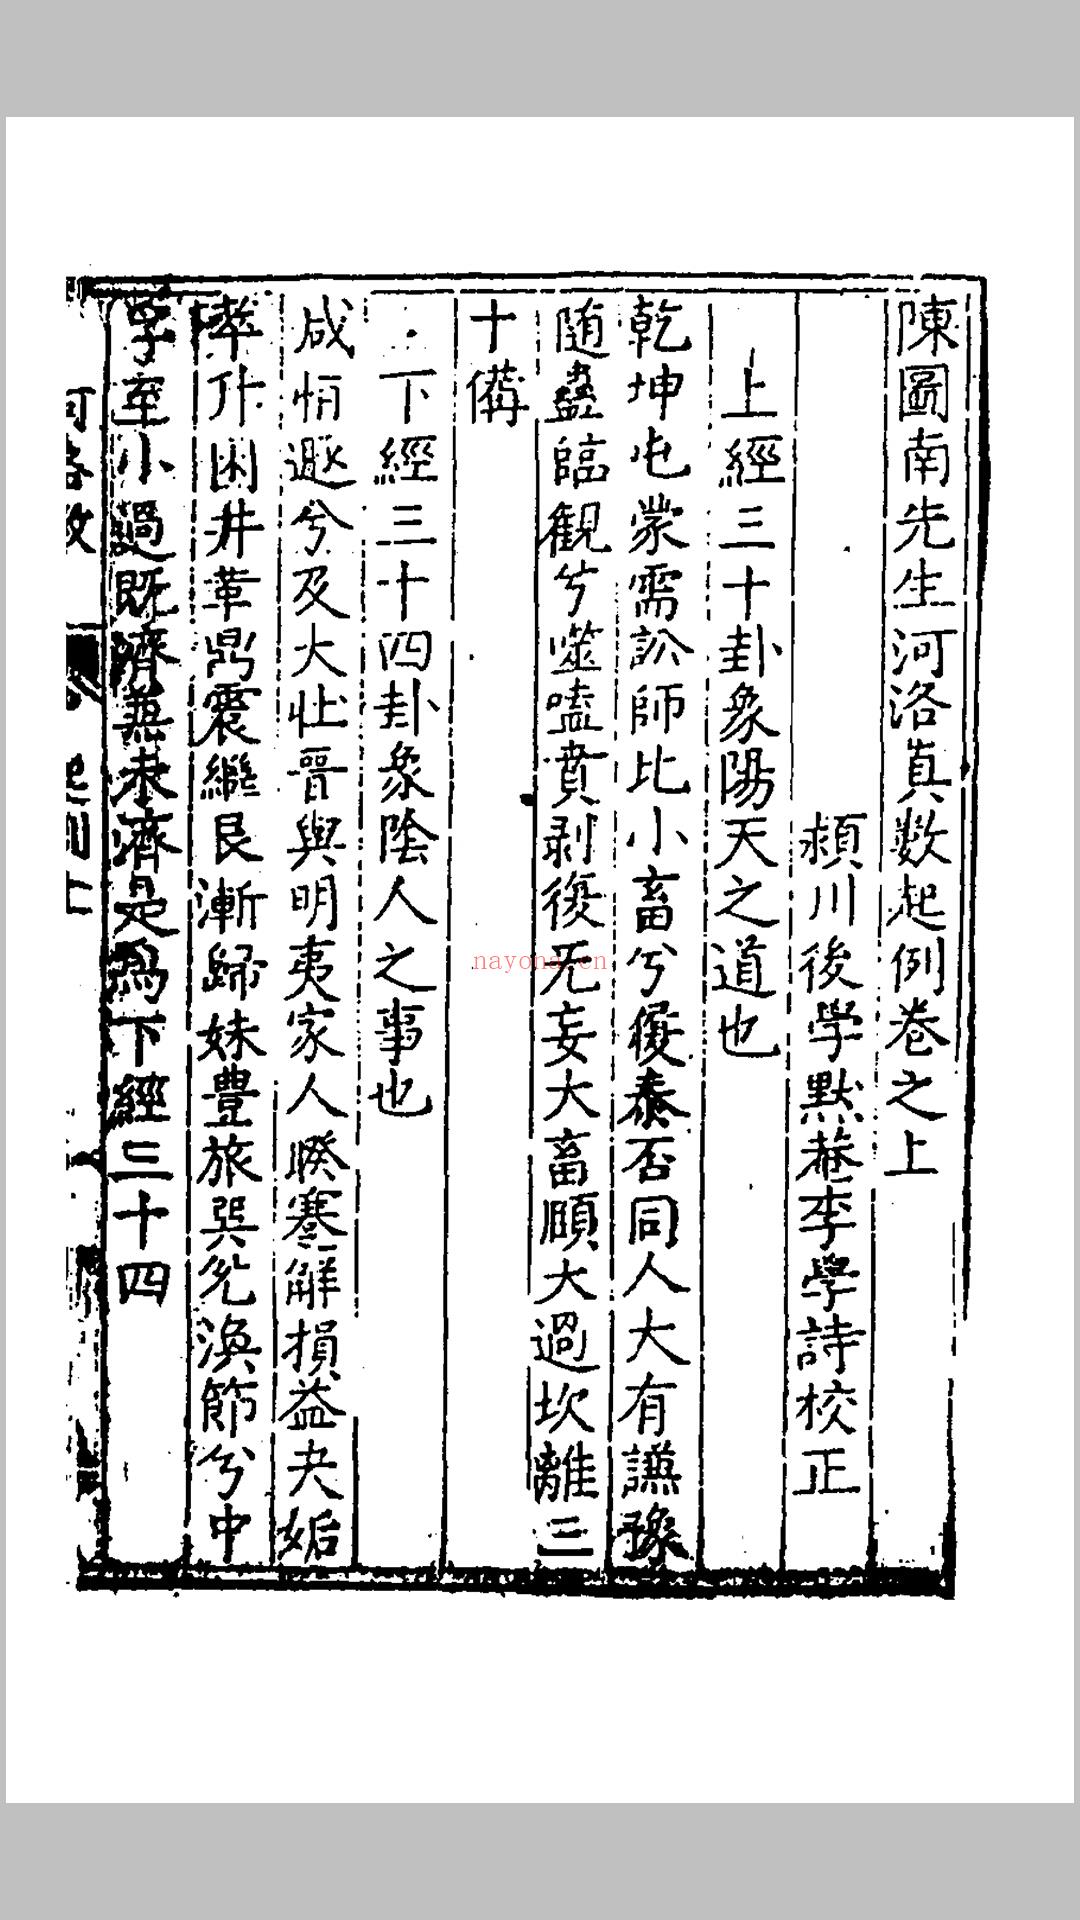 陳圖南先生河洛真數起例卷之上
頴川後學默菴李學詩校正
上經三十卦象陽天之道也
乾坤屯蒙需訟師比小畜兮履泰否同人大有謙豫
随蠱臨觀兮噬嗑賁剥復无妄大畜頤大過坎離三
十備
下經三十四卦象陰人之事也
咸恒遯兮及大壯晉與明夷家人睽蹇解損益夬姤
萃升困井革鼎震繼艮漸歸妹豊旅巽兊渙節兮中
孚至小過既濟兼未濟是為下經三十四
nayona.cn